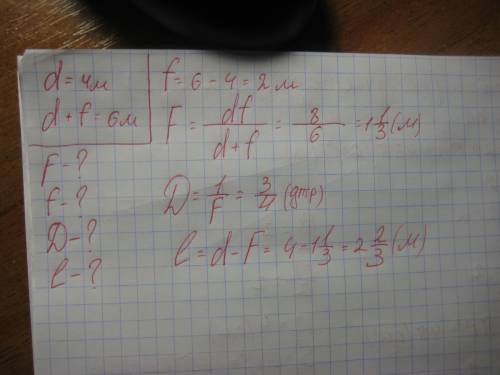 d = 4м
d + f = 6м
F - ?
f - ?
D - ?
l - ?
f = 6 - 4 = 2 м
F = df / d+f = 8/6 = 1 1/3 (м)
D = 1/F = 3/4 (дтр)
l = d - F = 4 - 1 1/3 = 2 2/3 (м)